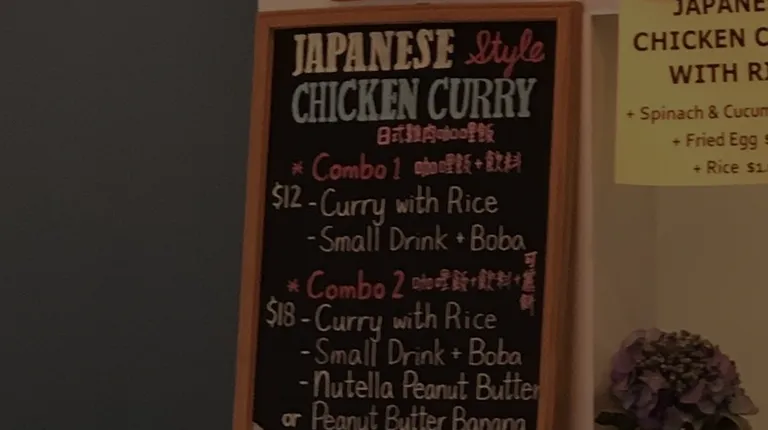 JAPANESE Style
CHICKEN CURRY
日式雞肉咖哩飯
* Combo 1 咖哩飯+飲料
$12 - Curry with Rice
- Small Drink + Boba
* Combo 2 咖哩飯+飲料+可麗餅
$18 - Curry with Rice
- Small Drink + Boba
- Nutella Peanut Butter
or Peanut Butter Banana
JAPANE
CHICKEN C
WITH RI
+ Spinach & Cucum
+ Fried Egg $
+ Rice $1.